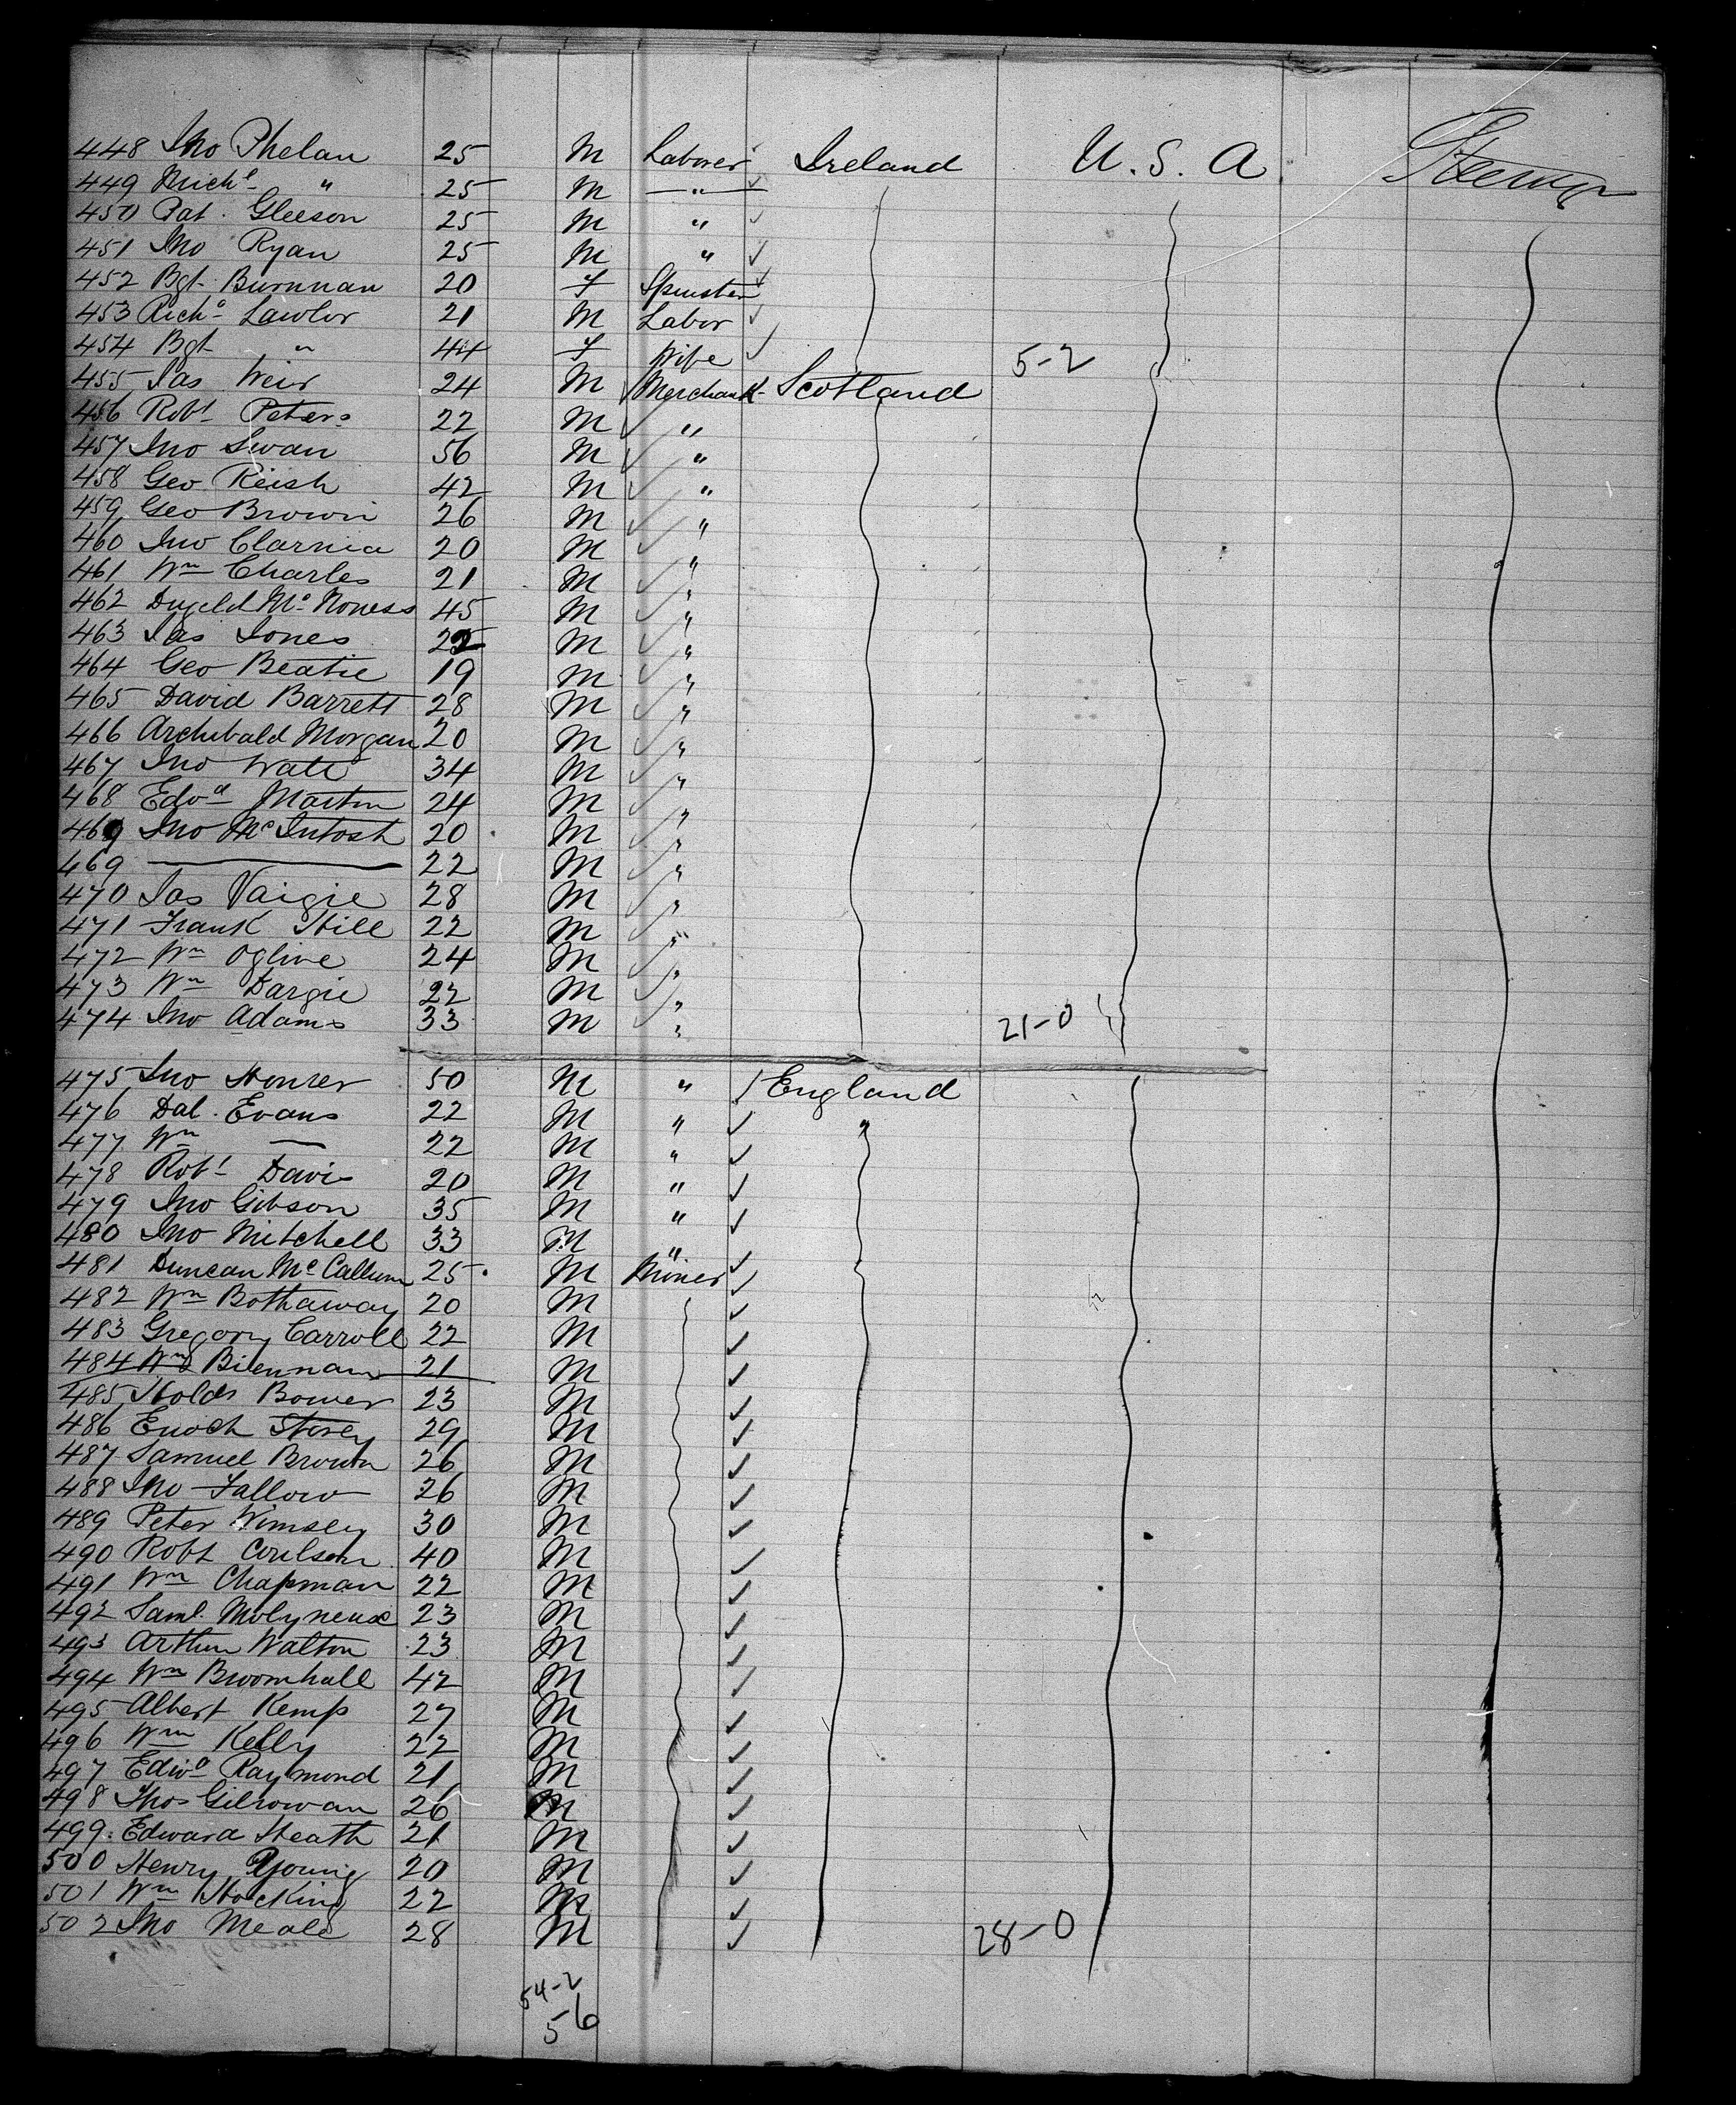 448 Jno Phelan 25 M Laborer Ireland U. S. A
449 Michl " 25 M — " —
450 Pat. Gleeson 25 M "
451 Jno Ryan 25 M "
452 Bgt. Burnnan 20 F Spinster
453 Richd Lawlor 21 M Labor
454 Bgt " 44 F Wife 5-2
455 Jas Weir 24 M Merchant Scotland
456 Robt Peters 22 M "
457 Jno Swan 56 M "
458 Geo Reish 42 M "
459 Geo Brown 26 M "
460 Jno Clarnia 20 M "
461 Wm Charles 21 M "
462 Dugeld Mc Noness 45 M "
463 Jas Jones M "
464 Geo Beatie 19 M "
465 David Barrett 28 M "
466 Archibald Morgan 20 M "
467 Jno Watt 34 M "
468 Edwd Martin 24 M "
469 Jno McIntosh 20 M "
469 — 22 M "
470 Jas Vaigie 28 M "
471 Frank Hill 22 M "
472 Wm Oglive 24 M "
473 Wm Dargie 22 M "
474 Jno Adams 33 M " 21-0
475 Jno 50 M " England
476 Dal. Evans 22 M " "
477 Wm — 22 M "
478 Robt Davis 20 M "
479 Jno Gibson 35 M "
480 Jno Mitchell 33 M "
481 Duncan McCallum 25 M Miner
482 Wm Bothaway 20 M
483 Gregory Carroll 22 M
484 Wm Biennan 21 M
485 Holds Bower 23 M
486 Enoch Storey 29 M
487 Samuel Brown 26 M
488 Jno Fallow 26 M
489 Peter Wimsley 30 M
490 Robt Coulson 40 M
491 Wm Chapman 22 M
492 Saml. Molyneux 23 M
493 Arthur Walton 23 M
494 Wm Broomhall 42 M
495 Albert Kemp 27 M
496 Wm Kelly 22 M
497 Edwd Raymond 21 M
498 Thos Gilrowan 26 M
499. Edward Heath 21 M
500 Henry Young 20 M
501 Wm Hocking 22 M
502 Jno Meale 28 M 28-0
54-2
56